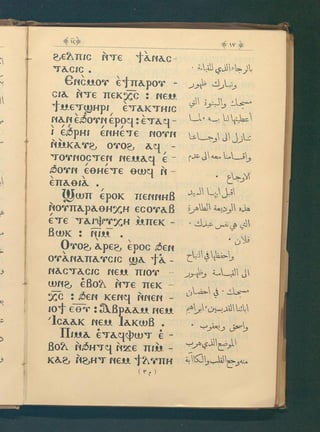 ١٧
ϩⲉⲗⲡⲓⲥ ⲛ̀ⲧⲉ ϯⲁ̀ⲛⲁⲥ-
ⲧⲁⲥⲓⲥ .
Ⲉⲛⲥ̀ⲙⲟⲩ ⲉ̀ϯⲡⲁⲣⲟⲩ-
ⲥⲓⲁ ⲛ̀ⲧⲉ ⲡⲉⲕⲭ̅ⲥ̅ : ⲛⲉⲙ
ϯⲙⲉⲧϣⲏⲣⲓ ⲉ̀ⲧⲁⲕⲧⲏⲓⲥ
ⲛⲁⲛ ⲉ̀ϧⲟⲩⲛ ⲉⲣⲟϥ : ⲉ̀ⲧⲁϥ-
ⲓ̀ ⲉ̀ϧⲣⲏⲓ ⲉⲛⲏⲉ̀ⲧⲉ ⲛⲟⲩⲛ
ⲛ̀ⲙⲕⲁⲩϩ ⲟⲩⲟϩ ⲁϥ-
ⲛⲉⲙⲁϥ ⲉ̀-
ϧⲟⲩⲛ ⲉⲑⲛⲏⲉ̀ⲧⲉ ⲑⲱϥ ⲛ̀-
ⲉ̀ⲡⲁⲑⲓⲁ .
Ϣⲱⲡ ⲉ̀ⲣⲟⲕ ⲡⲉⲛⲛⲏⲃ
ⲛ̀ⲟⲩⲡⲁⲣⲁⲑⲏⲕⲏ ⲉⲥⲟⲩⲁⲃ
ⲉ̀ⲧⲉ ⲧⲁⲓⲯⲩⲭⲏ ⲙ̀ⲡⲉⲕ-
ⲃⲱⲕ : ⲛ̅ⲓ̅ⲙ̅ .
Ⲟⲩⲟϩ ⲁⲣⲉϩ ⲉ̀ⲣⲟⲥ ϧⲉⲛ
ⲟⲩⲁ̀ⲛⲁⲡⲁⲩⲥⲓⲥ ϣⲁ ϯⲁ̀-
ⲛⲁⲥⲧⲁⲥⲓⲥ ⲛⲉⲙ ⲡⲓⲟⲩ-
ⲱⲛϩ ⲉ̀ⲃⲟⲗ ⲛ̀ⲧⲉ ⲡⲉⲕ-
ⲭ̅ⲥ̅ : ϧⲉⲛ ⲕⲉⲛϥ ⲛ̀ⲛⲉⲛ-
ⲓⲟϯ ⲉ̅ⲑ̅ⲩ̅ : Ⲁ̀ⲃⲣⲁⲁⲙ ⲛⲉⲙ
Ⲓ̀ⲥⲁⲁⲕ ⲛⲉⲙ Ⲓⲁⲕⲱⲃ .
Ⲡⲓⲙⲁ ⲉ̀ⲧⲁϥⲫⲱⲧ ⲉ̀-
ⲃⲟⲗ ⲛ̀ϧⲏⲧϥ ⲛ̀ϫⲉ ⲡⲓⲙ̀-
ⲕⲁϩ ⲛ̀ϩⲏⲧ ⲛⲉⲙ ϯⲗⲩⲡⲏ
بالرجاء الذي للقيامة .
ونبارك ظهور
مسيحك والبنوة التي
أعطيتها لنا به . لما
تنازل الى اوجاعنا
وأقامنا معه الى عدم
الاوجاع .
أقبل اليك ايها السيد
هذه الوديعة الطاهرة
التي هي نفس عبدك
فلان .
واحفظها في النياح
الى القيامة وظهور
مسيحك . في احضان
ابائنا القديسين ابراهيم
واسحق ويعقوب .
الموضع الذي هرب
منه وجع القلب والكآبة
(م٣)